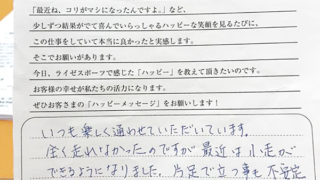 「最近ね、コリがマシになったんですよ。」など、
少しずつ結果がでて喜んでいらっしゃるハッピーな笑顔を見るたびに、
この仕事をしていて本当に良かったと実感します。
そこでお願いがあります。
今日、ライゼスポーツで感じた「ハッピー」を教えて頂きたいのです。
お客様の幸せが私たちの活力になります。
ぜひお客さまの「ハッピーメッセージ」をお願いします！
いつも楽しく通わせていただいています。
全く走れなかったのですが最近は小走が
できるようになりました。片足で立つ事も不安定